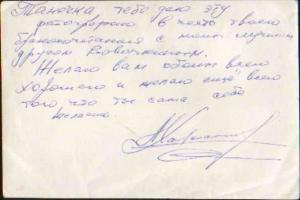 Танечка, тебе даю эту
фотографию в честь твоего
бракосочетания с моим лучшим
другом
Желаю вам обоим всего
хорошего и желаю ещё всего
того что ты сама себе
желаешь.